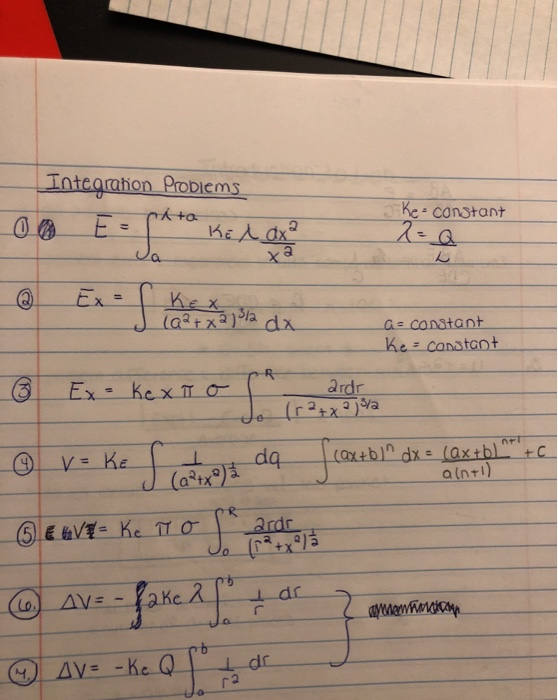 Integration Problems
① E = ∫ₐ^(l+a) Kε λ dx²/x²
Ke = constant
λ = Q/L
② Ex = ∫ Kε x/(a²+x²)^(3/2) dx
a = constant
Ke = constant
③ Ex = Ke x π σ ∫₀^R 2rdr/(r²+x²)^(3/2)
④ V = Kε ∫ 1/(a²+x²)^(1/2) dq ∫(ax+b)ⁿ dx = (ax+b)^(n+1)/a(n+1) + C
⑤ V = Ke π σ ∫₀^R 2rdr/(r²+x²)^(1/2)
⑥ ΔV = - 2Ke λ ∫ₐ^b 1/r dr
⑦ ΔV = -Ke Q ∫ₐ^b 1/r² dr